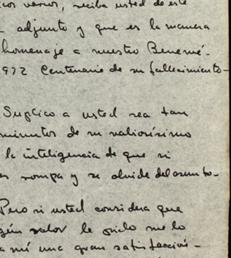 cos versos, reciba usted de este
adjunto y que es la manera
homenaje a nuestro Benemé-
1972 Centenario de su fallecimiento-
Suplico a usted sea tan
minutos de su valiosísimo
la inteligencia de que si
rompa y se olvide del asunto.
Pero si usted considera que
gún valor le pido me lo
a mí una gran satisfacción-